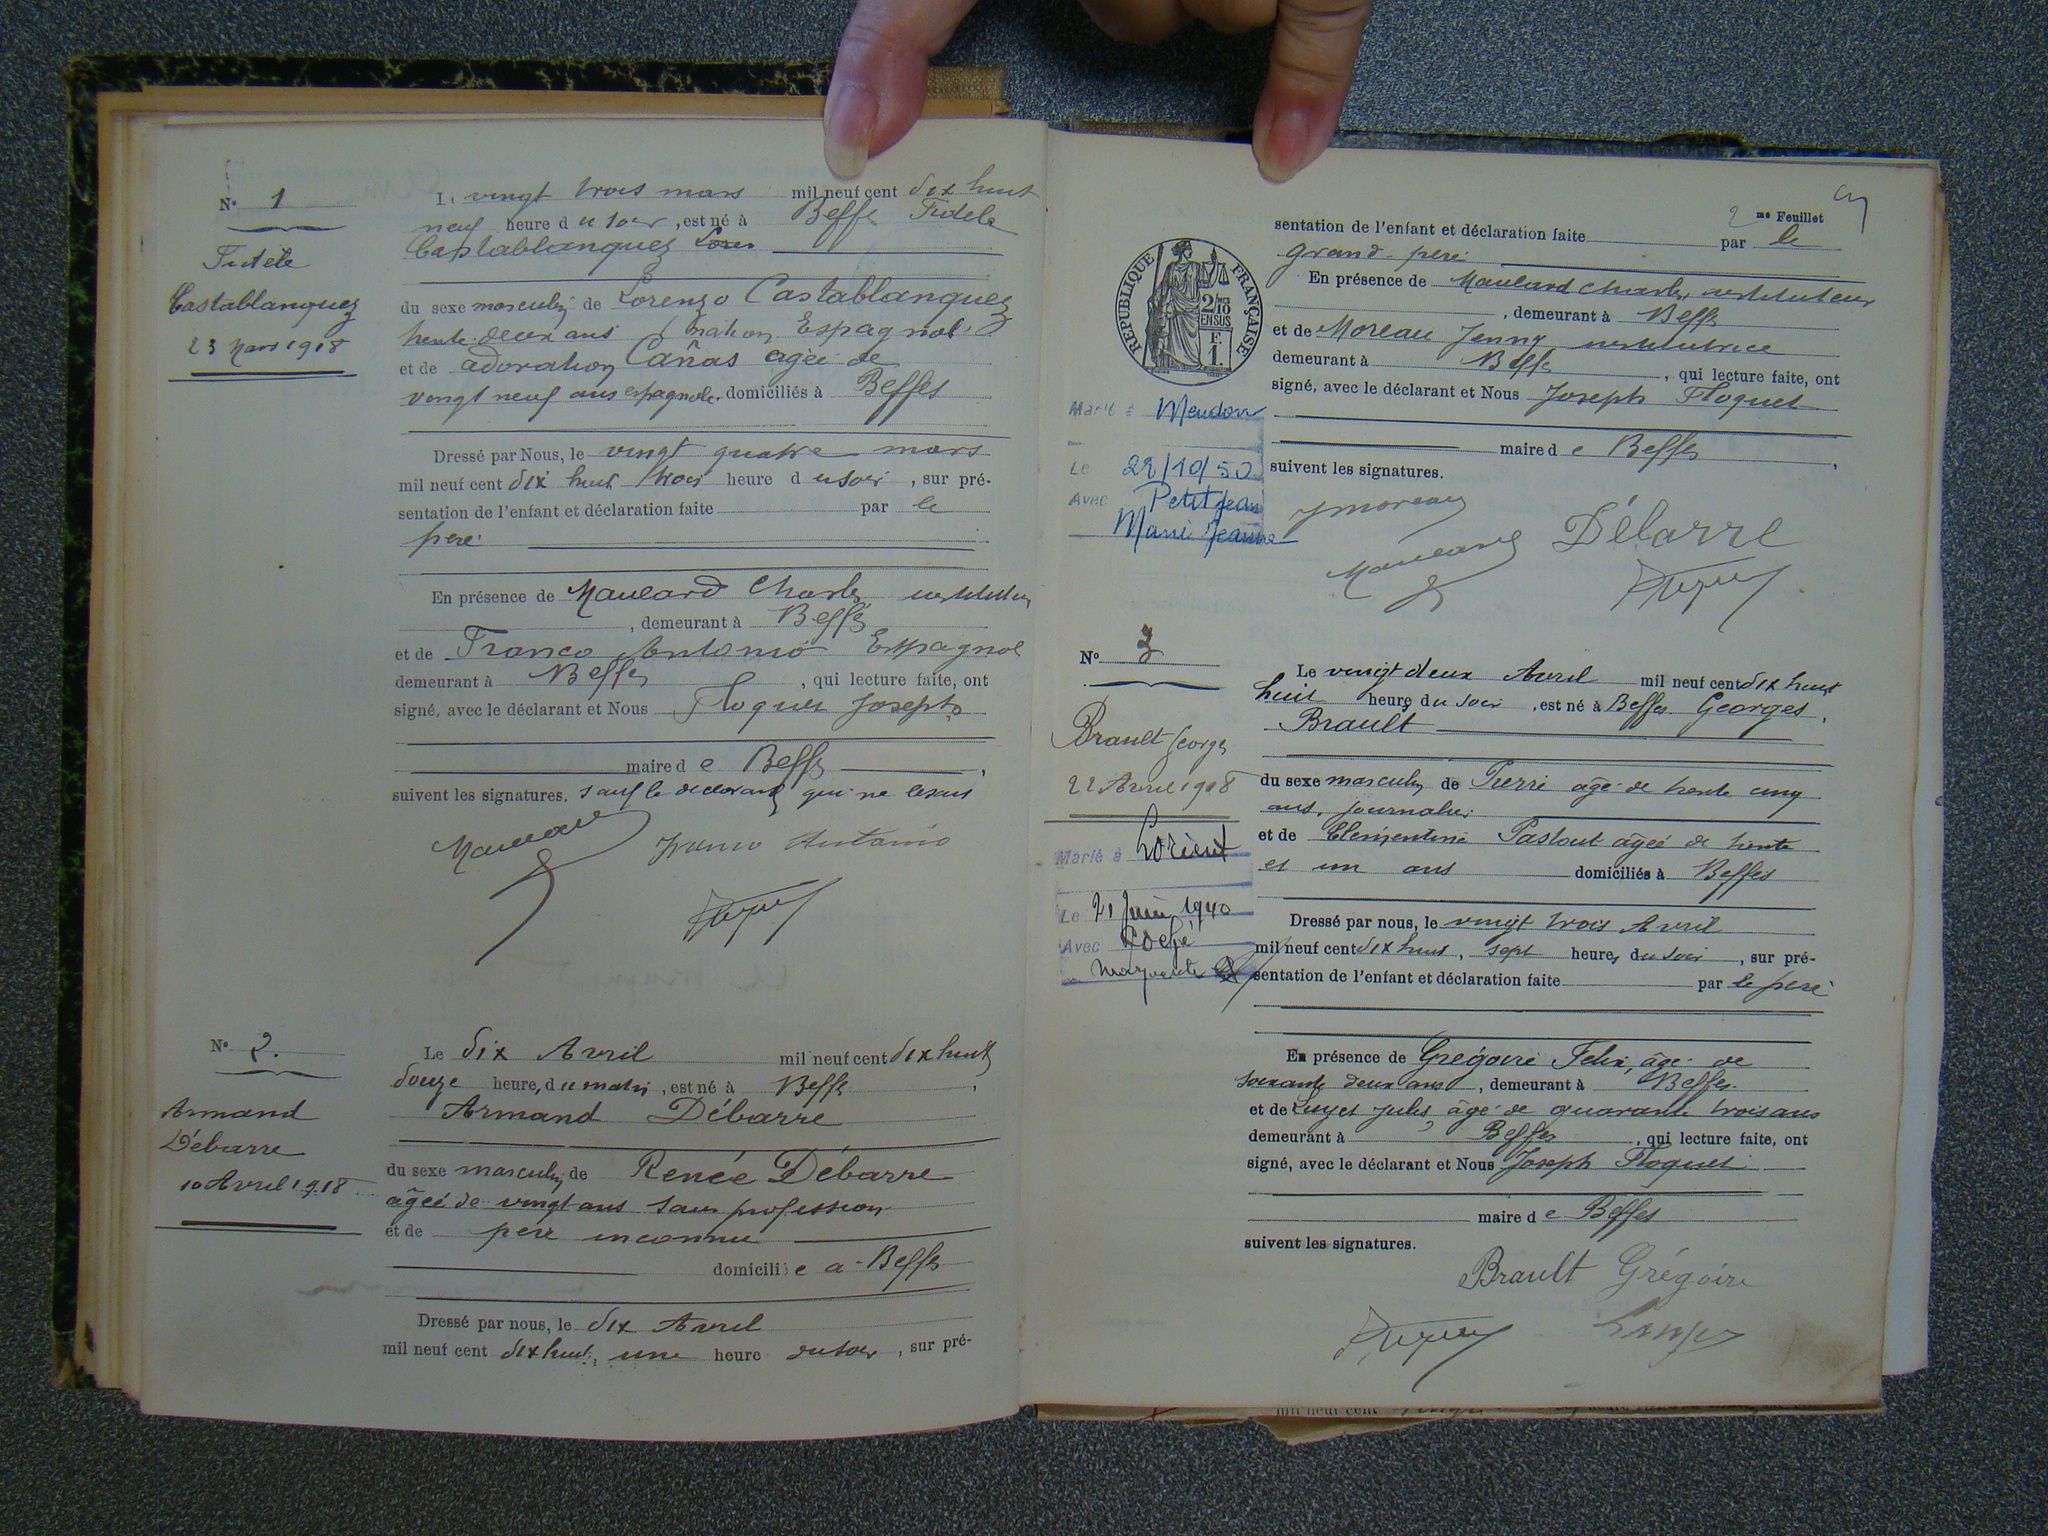 N° 1
Fidèle
Castablanquez
23 Mars 1918
Le vingt trois mars mil neuf cent dix huit
neuf heure du soir, est né à Beffes Fidele
Castablanquez
du sexe masculin de Lorenzo Castablanquez
trente deux ans nation Espagnol
et de adoration Cañas agée de
vingt neuf ans espagnole, domiciliés à Beffes
Dressé par Nous, le vingt quatre mars
mil neuf cent dix huit trois heure du soir, sur pré-
sentation de l'enfant et déclaration faite par le
pere
En présence de Maulard Charles instituteur
, demeurant à Beffes
et de Franco Antonio Espagnol
demeurant à Beffes, qui lecture faite, ont
signé, avec le déclarant et Nous Floquet Joseph
maire de Beffes
suivent les signatures. sauf le declarant qui ne
Maulard
Franco Antonio
N° 2.
Armand
Débarre
10 Avril 1918
Le dix Avril mil neuf cent dix huit
douze heure, du matin, est né à Beffes,
Armand Débarre
du sexe masculin de Renée Débarre
âgée de vingt ans sans profession
et de père inconnu
domiciliée a Beffes
Dressé par nous, le dix Avril
mil neuf cent dix huit, une heure du soir, sur pré-
2 me Feuillet
sentation de l'enfant et déclaration faite par le
grand-pere
En présence de Maulard Charles, instituteur
, demeurant à Beffes
et de Moreau Jenny institutrice
demeurant à Beffes, qui lecture faite, ont
signé, avec le déclarant et Nous Joseph Floquet
maire de Beffes,
suivent les signatures.
RÉPUBLIQUE FRANÇAISE
2/10 EN SUS
F.
1.
Marié à Meudon
Le 22/10/50
Avec Petitjean
Marie Jeanne
J Moreau
Maulard
Débarre
N° 3
Brault Georges
22 Avril 1918
Marié à Lorient
Le 21 Juin 1940
Avec
Marguerite
Le vingt deux Avril mil neuf cent dix huit
huit heure du soir, est né à Beffes Georges,
Brault
du sexe masculin de Pierre âgé de trente cinq
ans, journalier
et de Clementine Pastout âgée de trente
et un ans domiciliés à Beffes
Dressé par nous, le vingt trois Avril
mil neuf cent dix huit, sept heures du soir, sur pré-
sentation de l'enfant et déclaration faite par le pere
En présence de Grégoire Felix, âgé de
soixante deux ans, demeurant à Beffes
et de Luyet Jules, âgé de quarante trois ans
demeurant à Beffes, qui lecture faite, ont
signé, avec le déclarant et Nous Joseph Floquet
maire de Beffes
suivent les signatures.
Brault Grégoire
mil neuf cent vingt